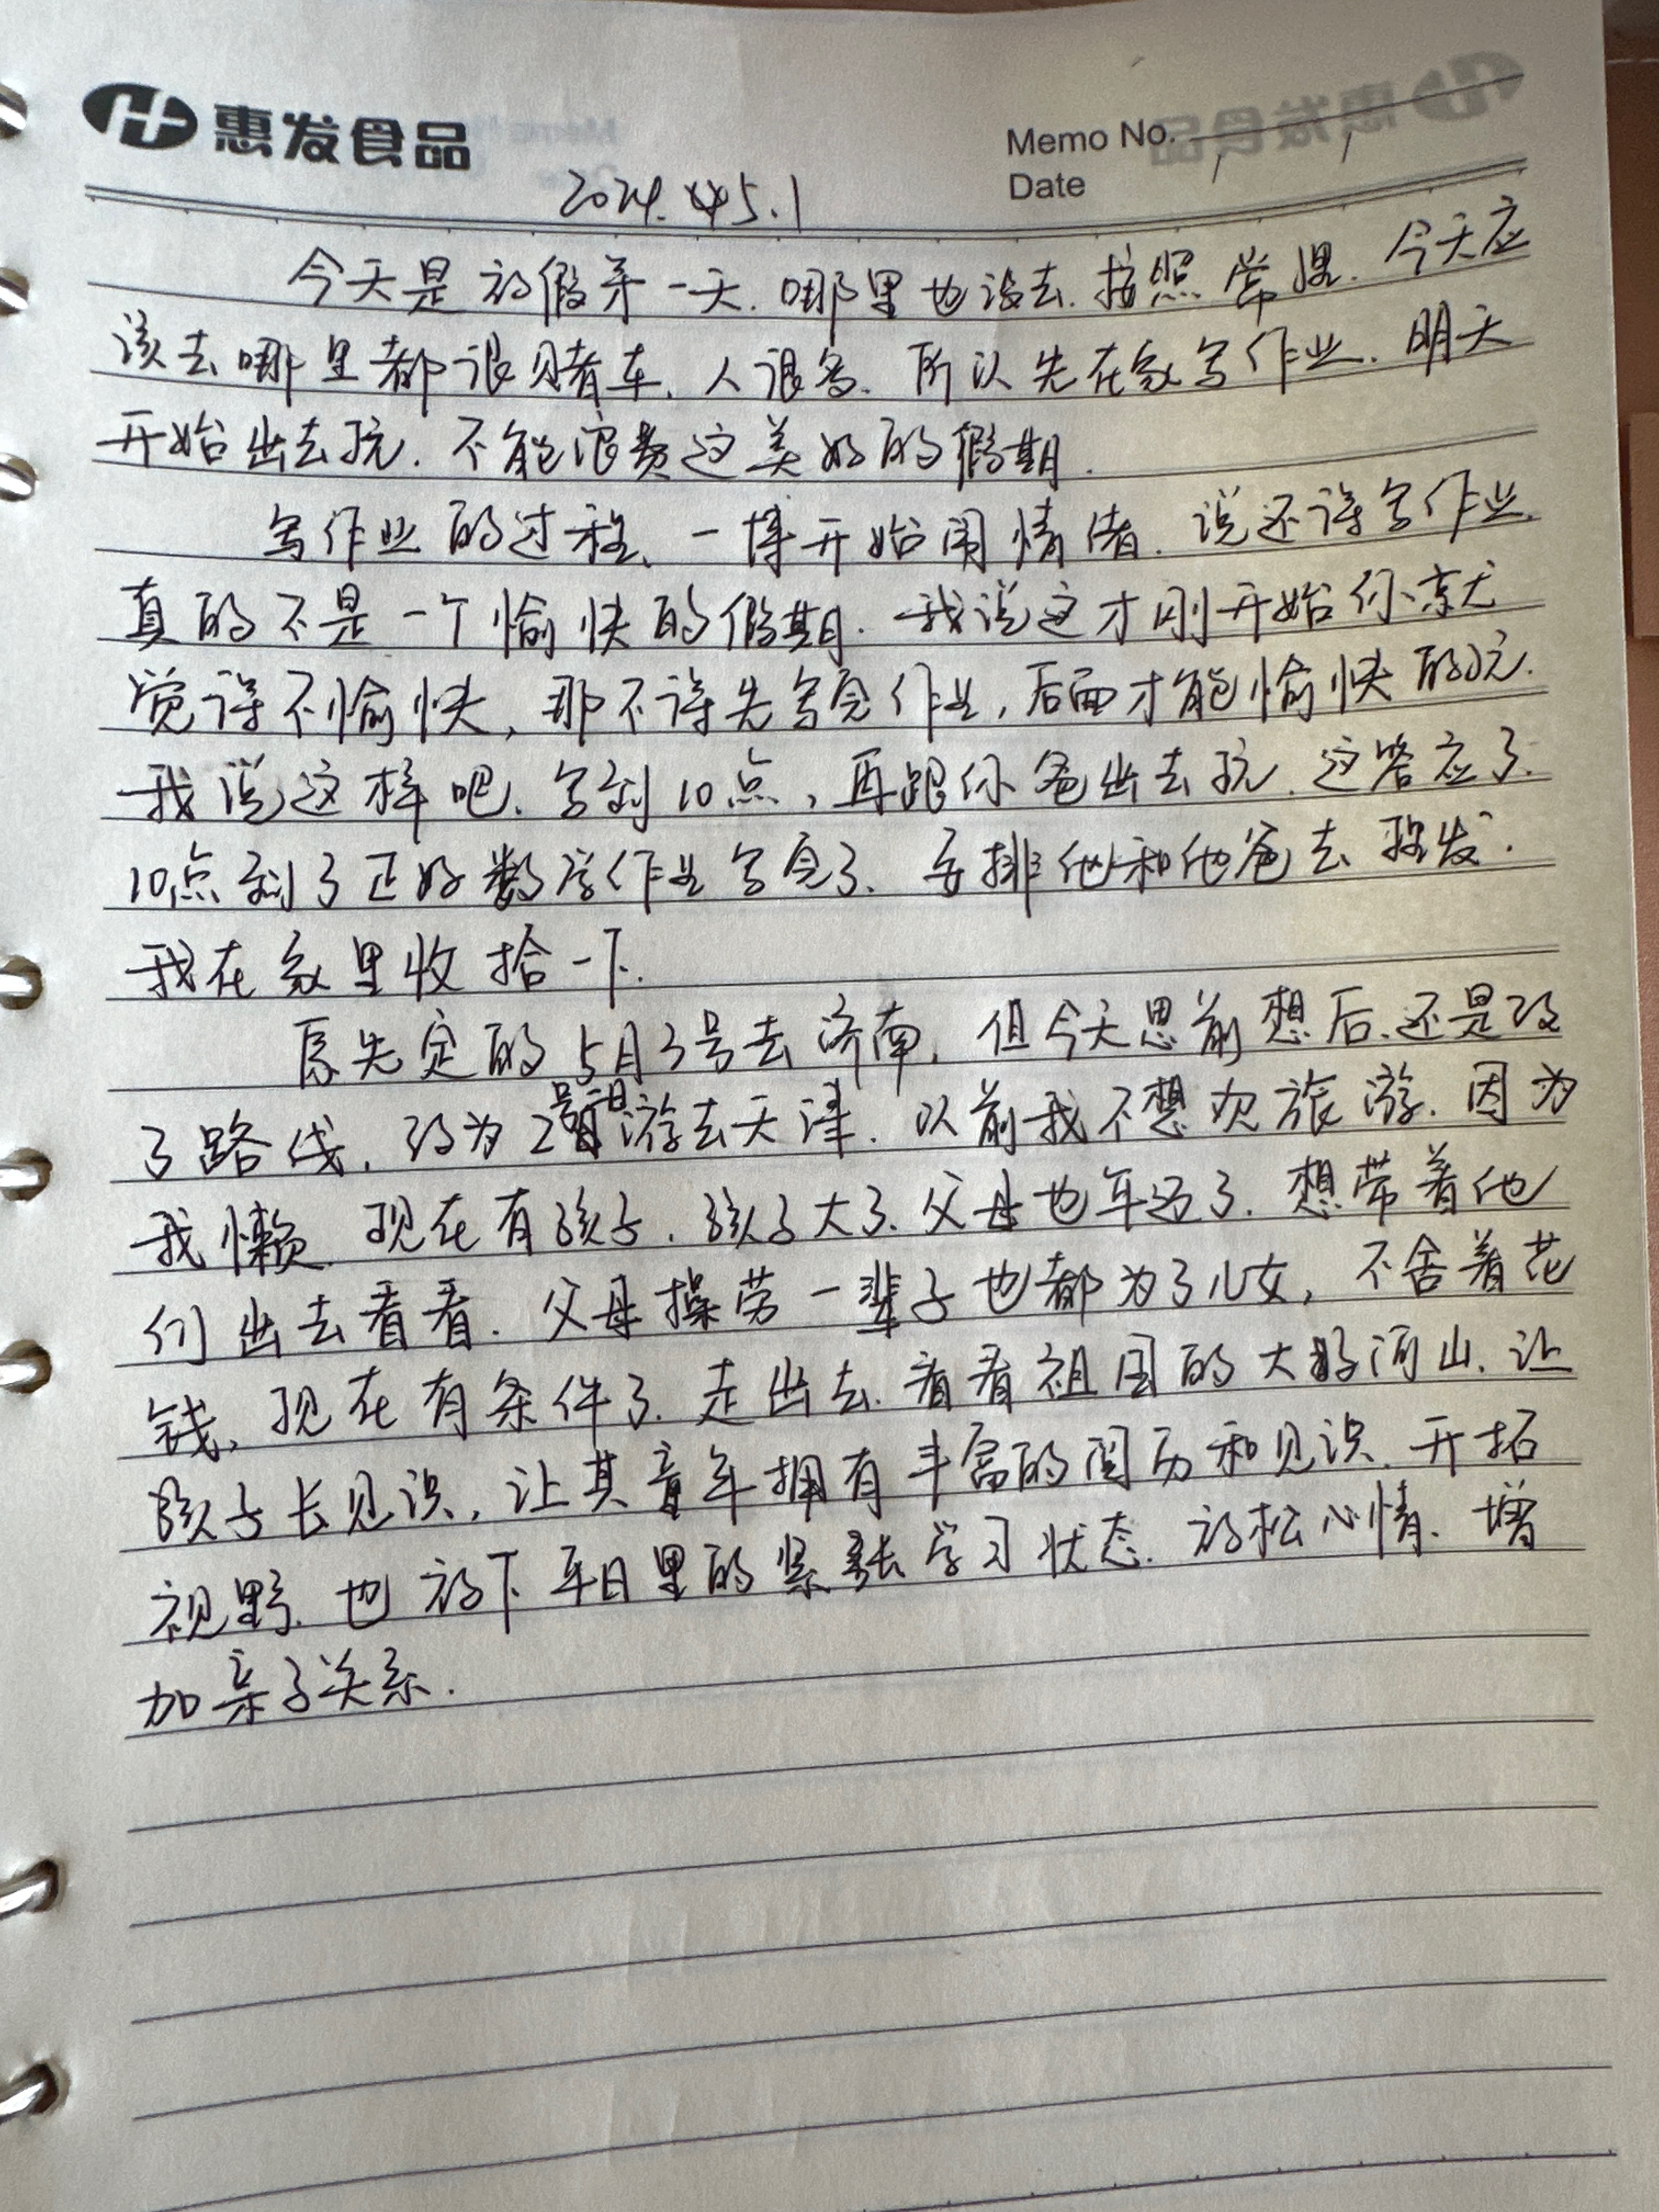 惠发食品
Memo No.
Date / /
2024. 5.1
今天是放假第一天.哪里也没去.按照常理.今天应
该去哪里都很堵车.人很多.所以先在家写作业.明天
开始出去玩.不能浪费这美好的假期.
写作业的过程、一博开始闹情绪.说还得写作业.
真的不是一个愉快的假期.我说这才刚开始你就
觉得不愉快,那不得先写完作业,后面才能愉快的玩.
我说这样吧.写到10点,再跟你爸出去玩.这答应了.
10点到了正好数学作业写完了.安排他和他爸去理发.
我在家里收拾一下.
原先定的5月3号去济南.但今天思前想后.还是改
了路线.改为2号 游去天津.以前我不想欢旅游.因为
我懒.现在有孩子.孩子大了.父母也年迈了.想带着他
们出去看看.父母操劳一辈子也都为了儿女,不舍着花
钱.现在有条件了.走出去.看看祖国的大好河山.让
孩子长见识,让其童年拥有丰富的阅历和见识.开拓
视野.也放下平日里的紧张学习状态.放松心情.增
加亲子关系.